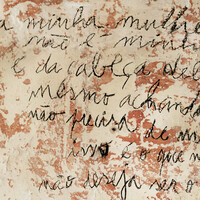 a minha mulher
não é
é da cabeça del
mesmo achando
não precisa de m
isso é o que m
não deseja ser o